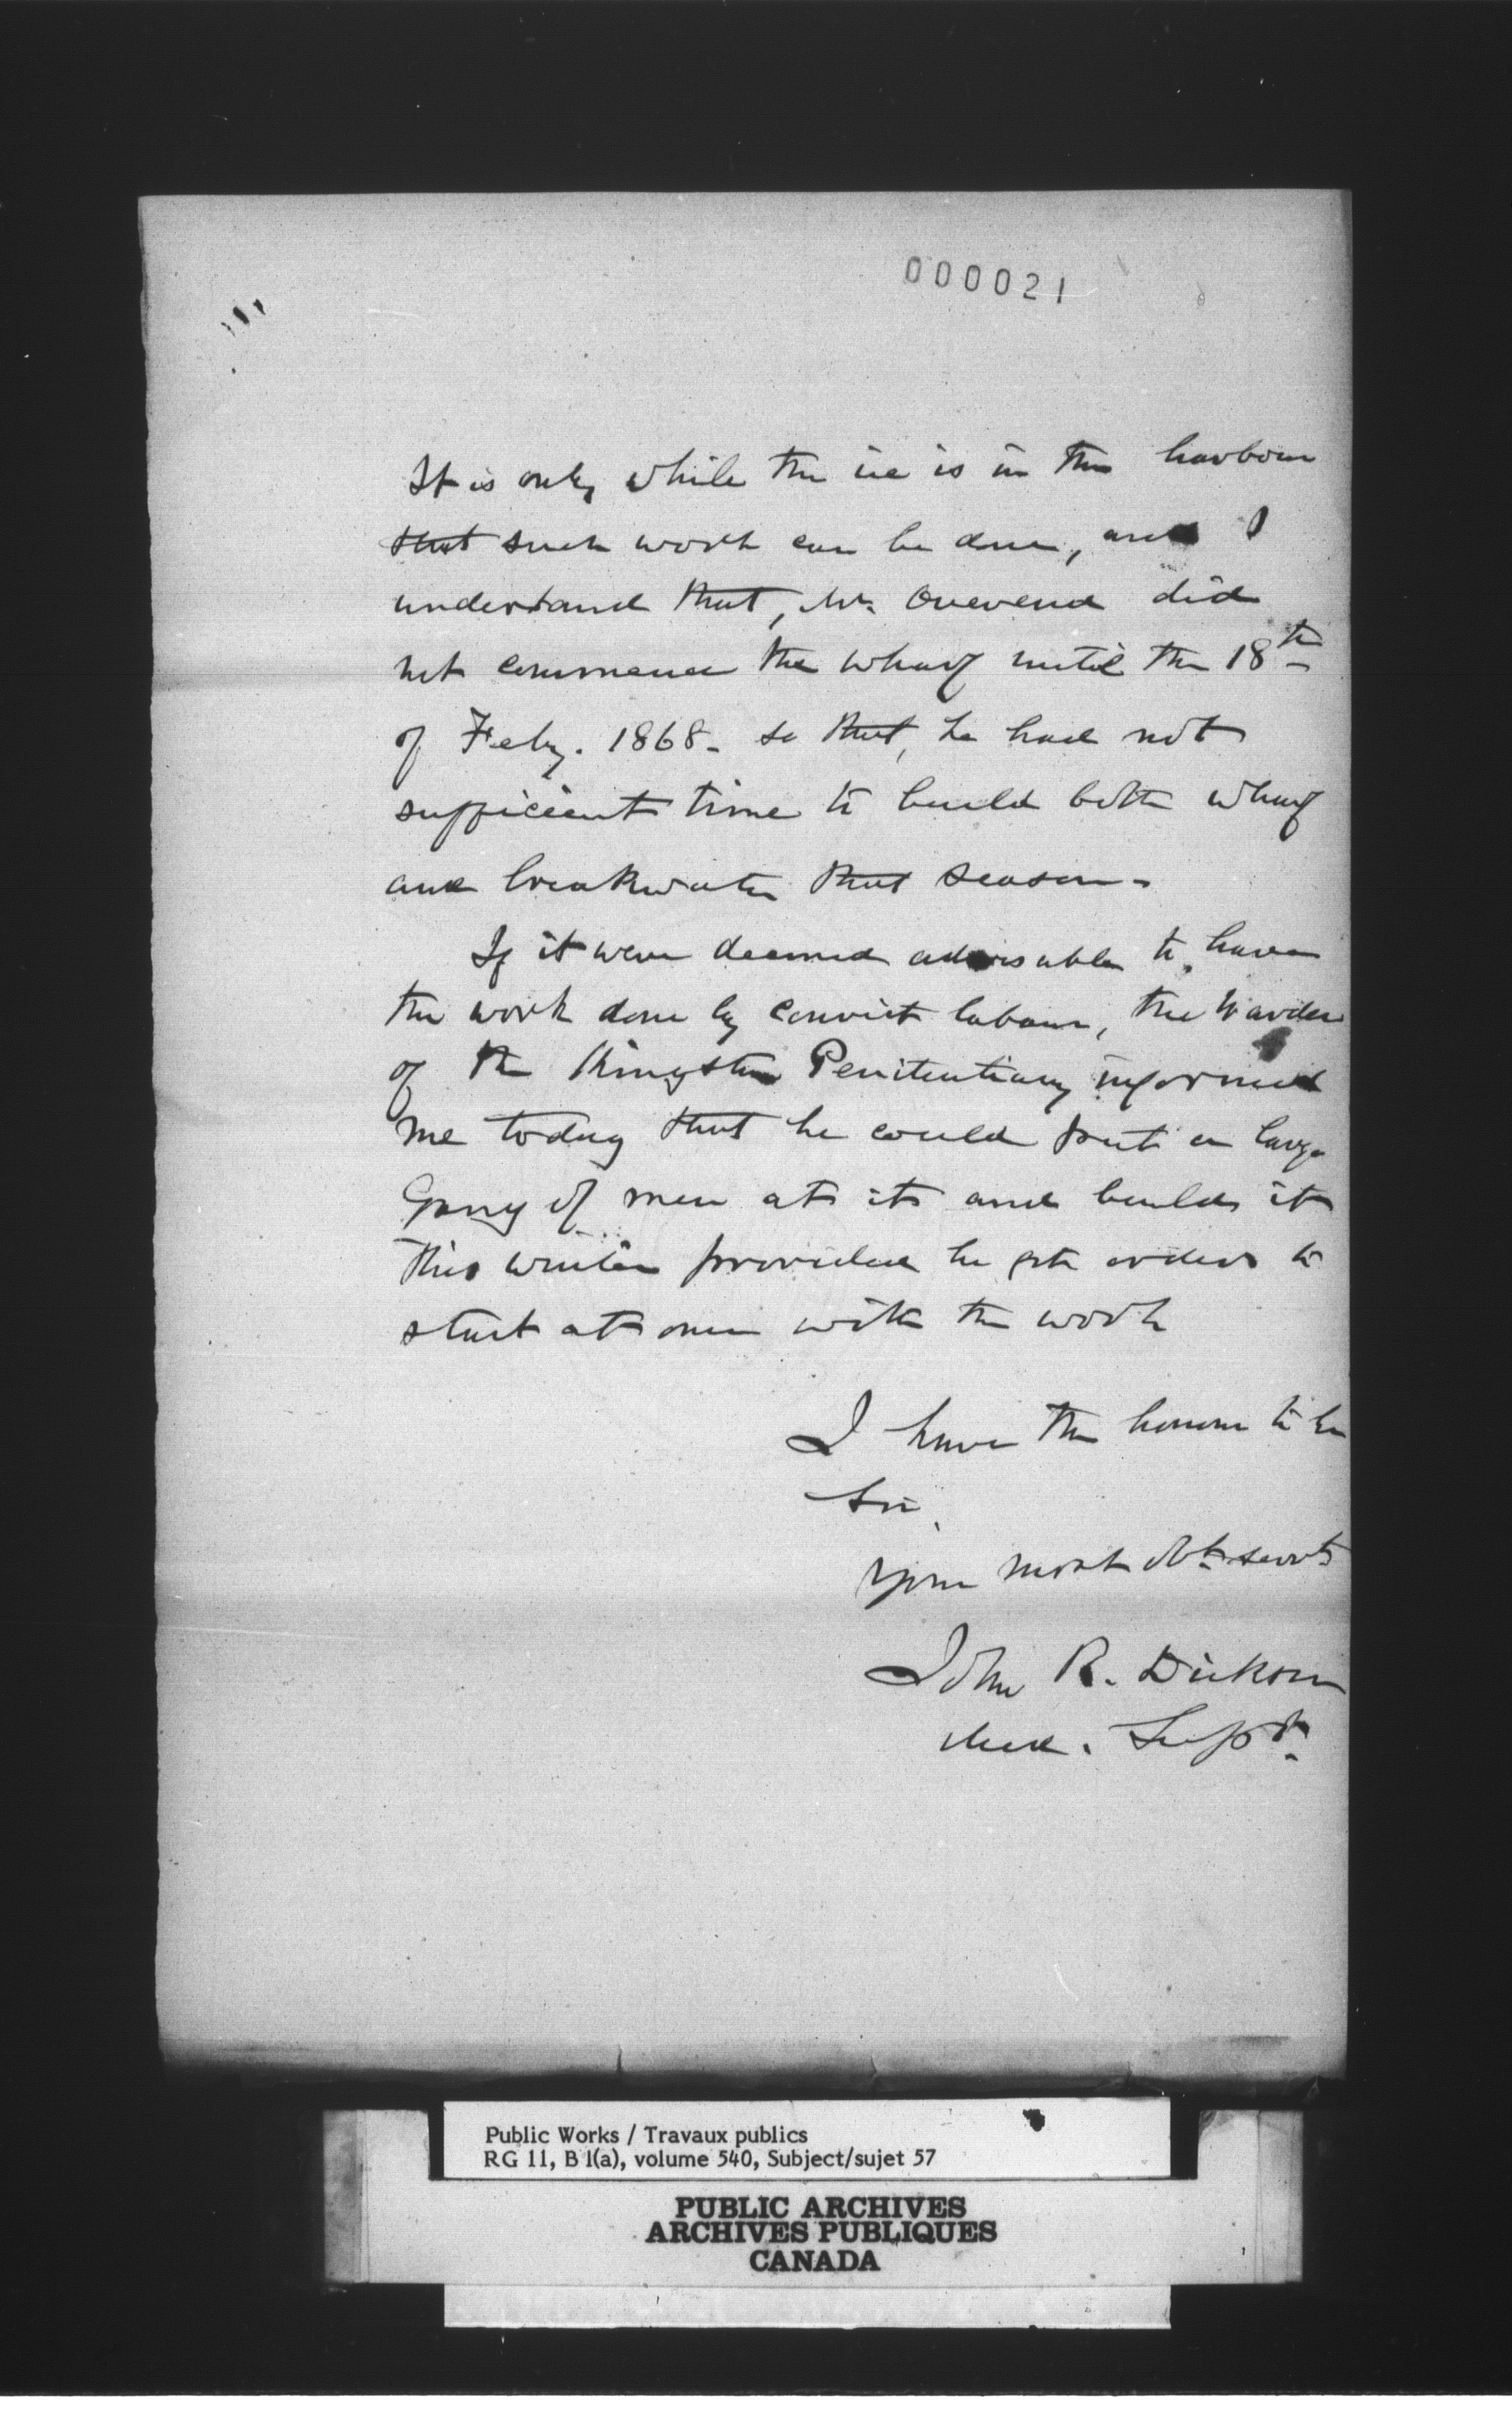 000021
It is only while the ice is in the harbour
that such work can be done, and I
understand that, Mr. Overend did
not commence the wharf until the 18th
of Feby. 1868 - so that, he had not
sufficient time to build both wharf
and breakwater that season -
If it were deemed advisable to have
the work done by convict labour, the Warden
of the Kingston Penitentiary informed
me today that he could put a large
Gang of men at it and build it
this winter provided he got orders to
start at once with the work
I have the honour to be
Sir,
Your most obt. servt
John R. Dickson
Med. Supt.
Public Works / Travaux publics
RG 11, B 1(a), volume 540, Subject/sujet 57
PUBLIC ARCHIVES
ARCHIVES PUBLIQUES
CANADA